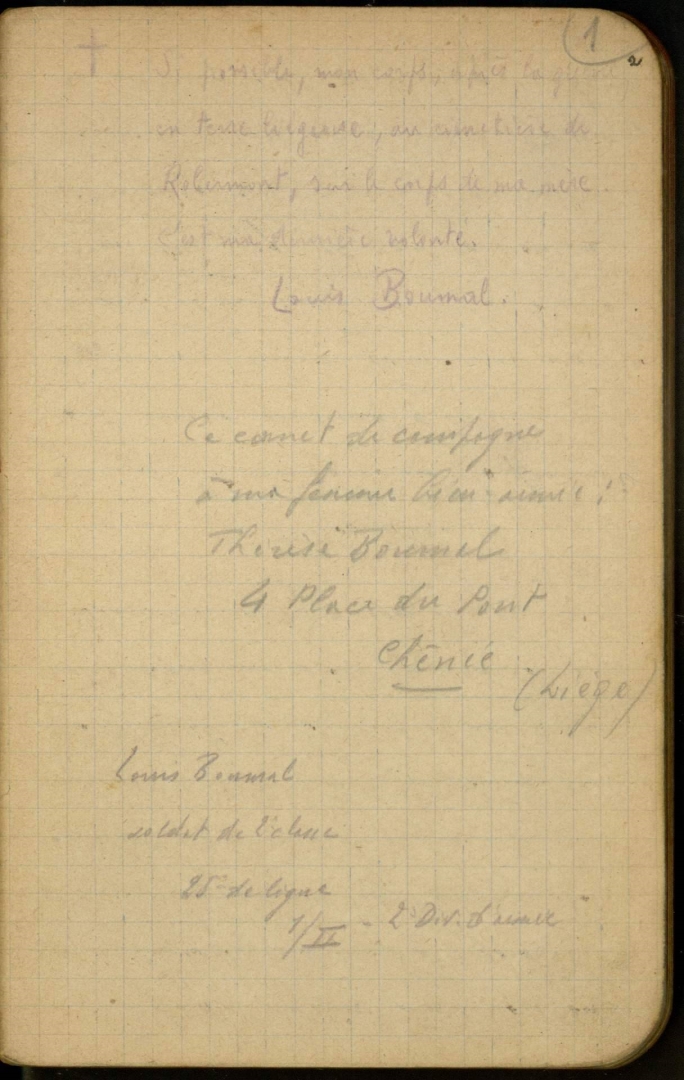 1
2
Si possible, mon corps, après la guerre,
en terre liégeoise, au cimetière de
Robermont, sur le corps de ma mère.
C'est ma dernière volonté.
Louis Boumal.
Ce carnet de campagne
à ma femme bien-aimée :
Thérèse Boumal
4 Place du Pont
Chênée
(Liège)
Louis Boumal
soldat de 2e classe
25e de ligne
1/II - 2e Div. d'armée